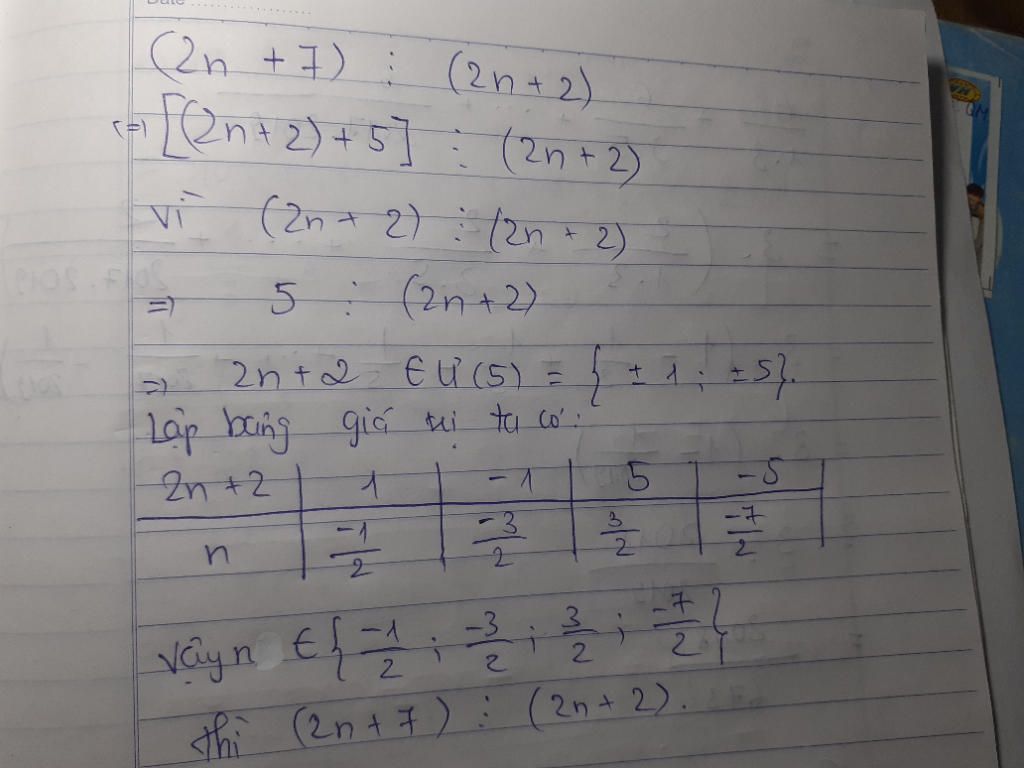 Date
(2n + 7) ⋮ (2n + 2)
<=> [(2n + 2) + 5] ⋮ (2n + 2)
vì (2n + 2) ⋮ (2n + 2)
=> 5 ⋮ (2n + 2)
=> 2n + 2 ∈ Ư(5) = { ± 1 ; ± 5}.
Lập bảng giá trị ta có:
2n + 2 | 1 | -1 | 5 | -5
n | -1/2 | -3/2 | 3/2 | -7/2
Vậy n ∈ { -1/2 ; -3/2 ; 3/2 ; -7/2 }
thì (2n + 7) ⋮ (2n + 2).